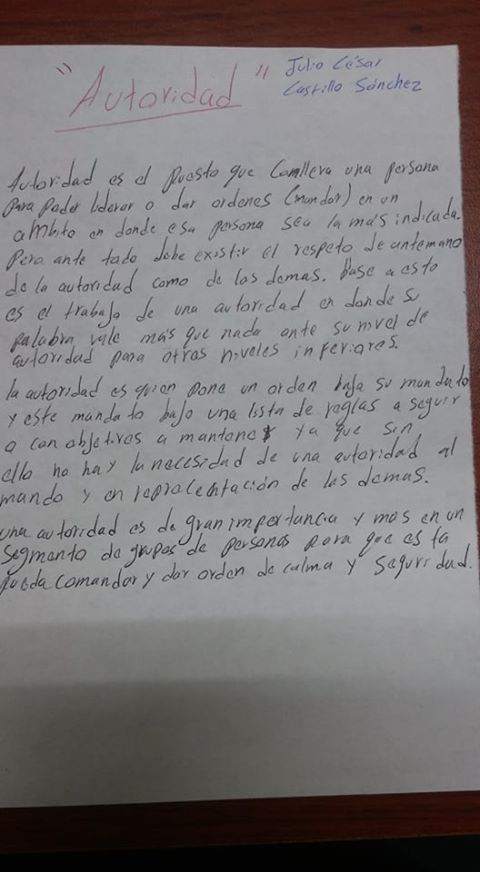 "Autoridad"
Julio César
Castillo Sánchez
Autoridad es el puesto que Conlleva una persona
para poder liderar o dar ordenes (mandar) en un
ambito en donde esa persona sea la más indicada.
Pero ante todo debe existir el respeto de antemano
de la autoridad como de los demas. Base a esto
es el trabajo de una autoridad en donde su
palabra vale más que nada ante su nivel de
autoridad para otros niveles inferiores.
la autoridad es quien pone un orden bajo su mandato
y este mandato bajo una lista de reglas a seguir
o con objetivos a mantener ya que sin
ello no hay la necesidad de una autoridad al
mando y en representación de los demas.
una autoridad es de gran importancia y mas en un
segmento de grupos de personas para que esta
pueda comandar y dar orden de calma y seguridad.